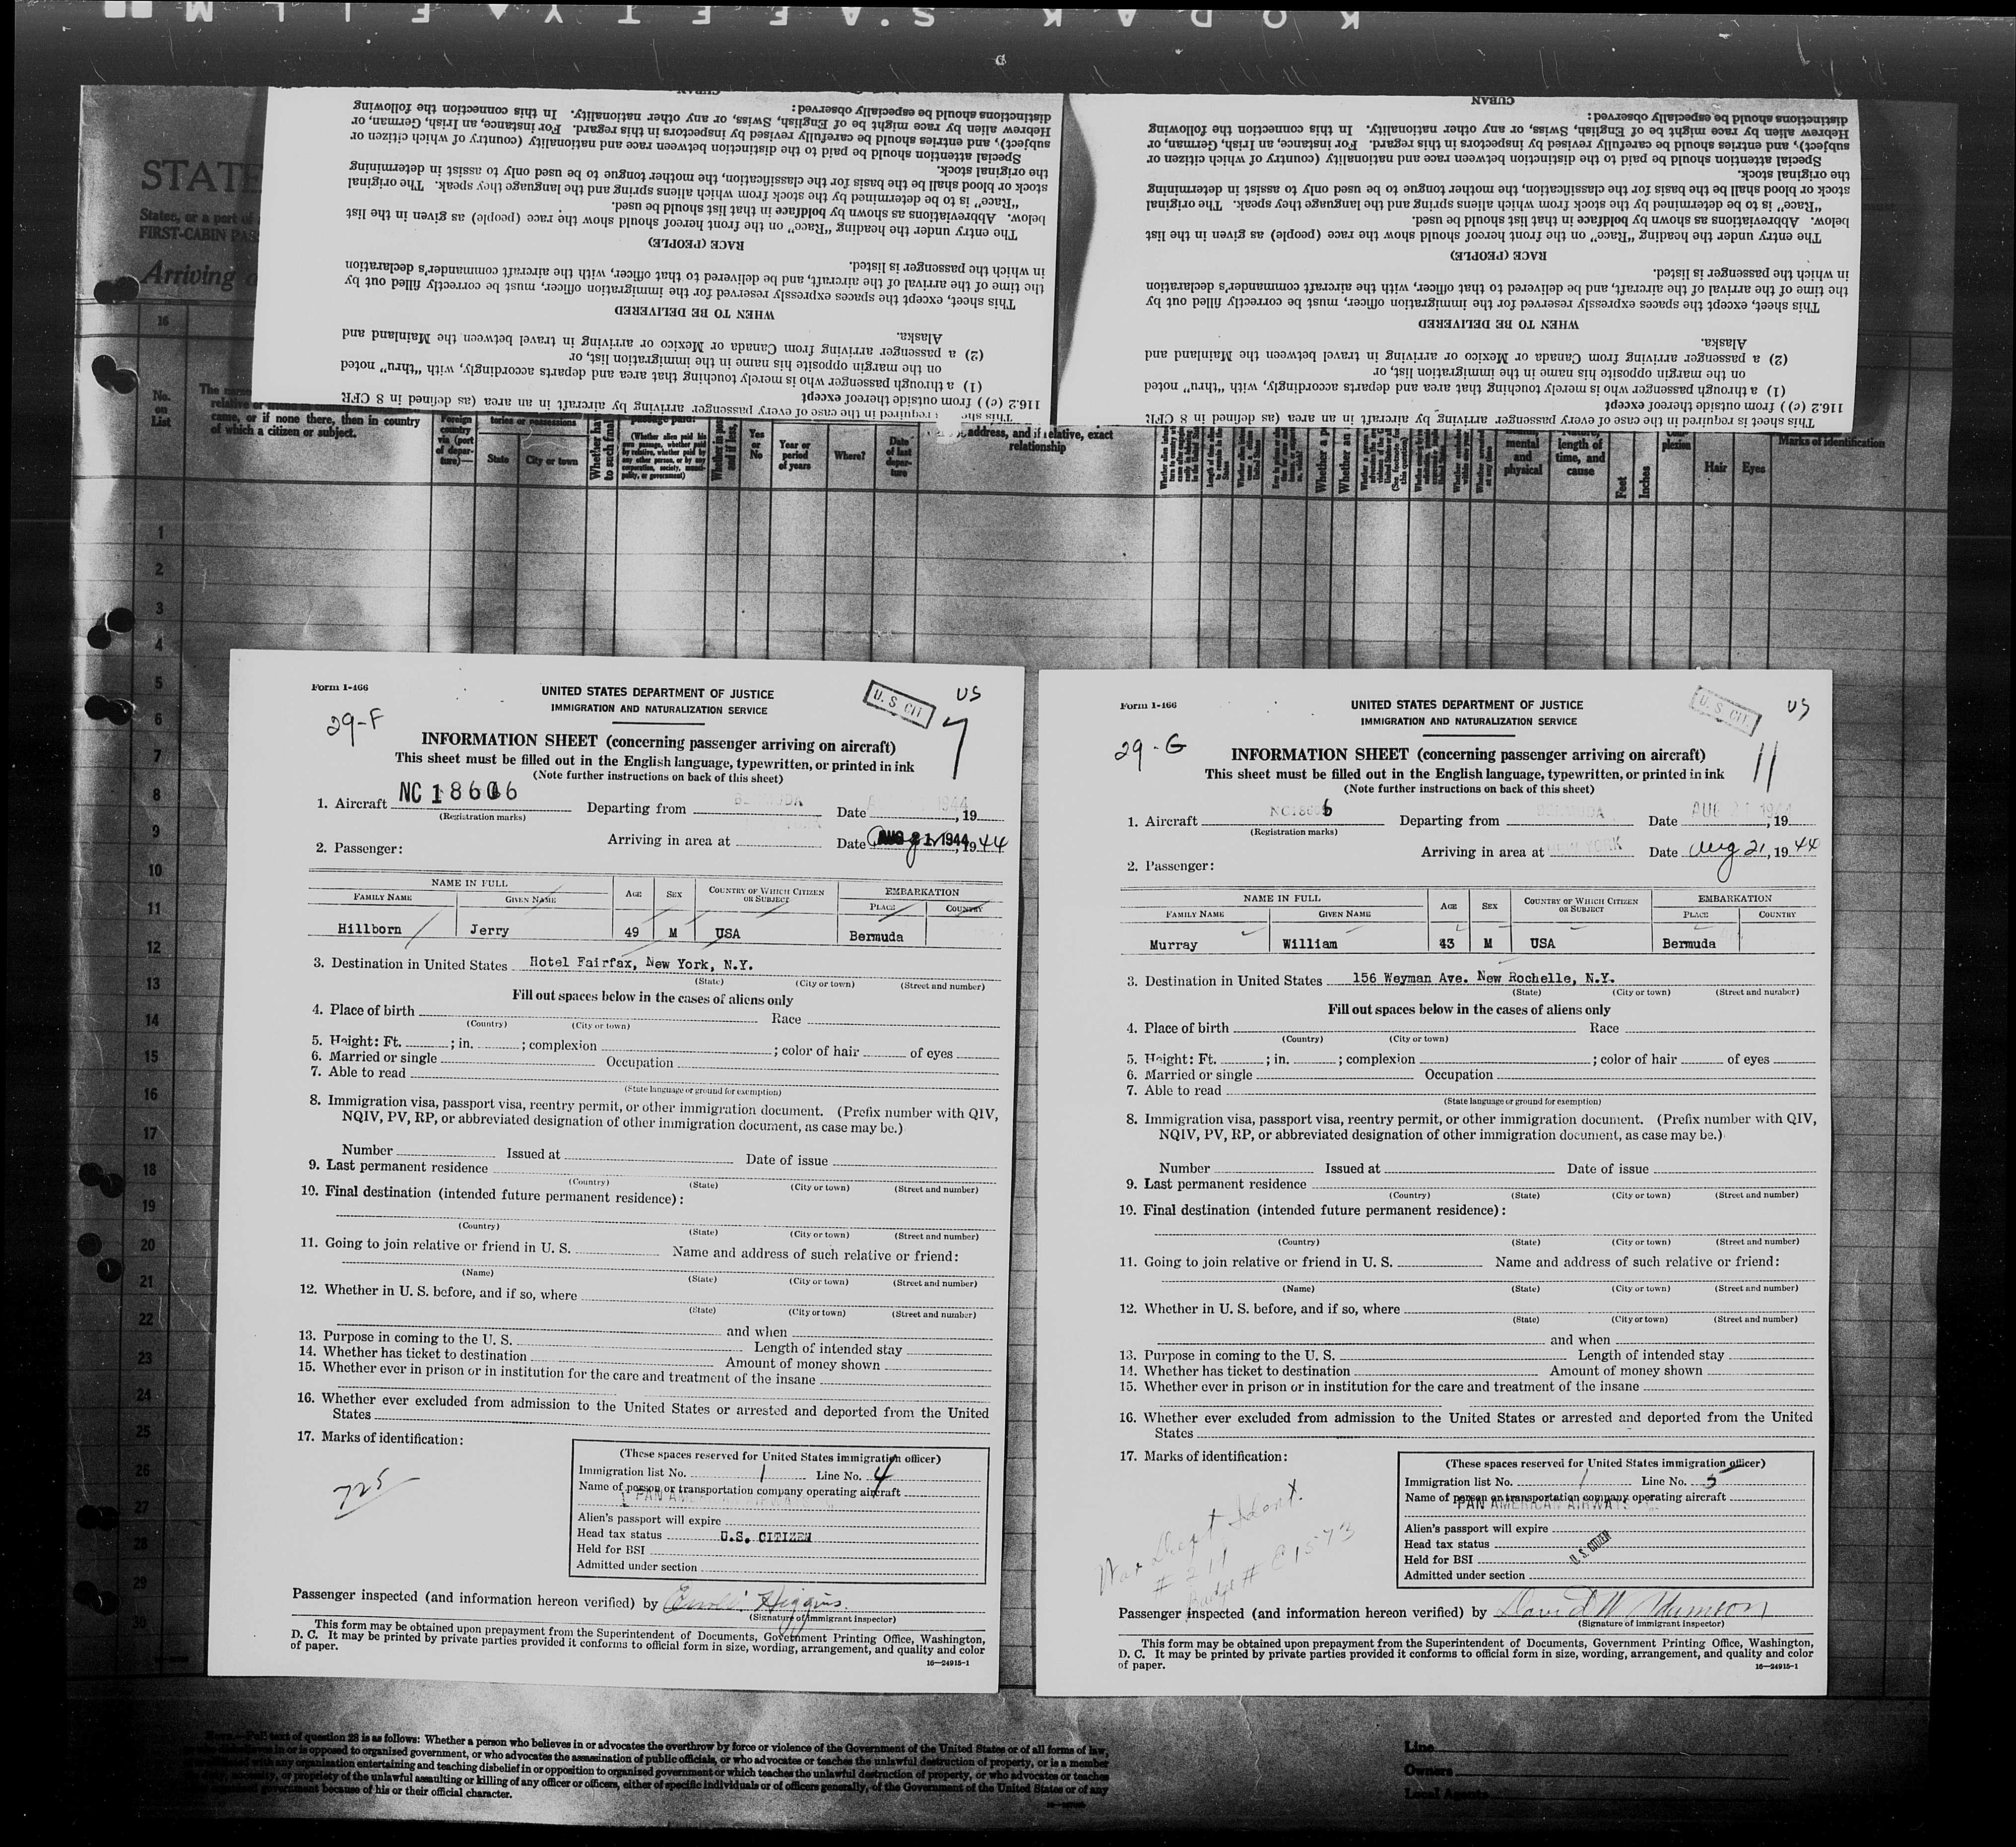 KODAK SAFETY FILM
STATE
States, or a part of
FIRST-CABIN PAS
Arriving
16
No.
on
List
came, or if none there, then in country
of which a citizen or subject.
Foreign
country
via (port
of depar-
ture)—
tories or possessions
State
City or town
(Whether alien paid his
own passage, whether paid
by relative, whether paid by
any other person, or by any
corporation, society, munici-
pality, or government)
Yes
or
No
Year or
period
of years
Where?
Date
of last
depar-
ture
address, and if relative, exact
relationship
mental
and
physical
length of
time, and
cause
Feet
Inches
plexion
Hair
Eyes
Marks of identification
CUBAN
This sheet is required in the case of every passenger arriving by aircraft in an area (as defined in 8 CFR
116.2 (c) ) from outside thereof except
(1) a through passenger who is merely touching that area and departs accordingly, with “thru” noted
on the margin opposite his name in the immigration list, or
(2) a passenger arriving from Canada or Mexico or arriving in travel between the Mainland and
Alaska.
WHEN TO BE DELIVERED
This sheet, except the spaces expressly reserved for the immigration officer, must be correctly filled out by
the time of the arrival of the aircraft, and be delivered to that officer, with the aircraft commander's declaration
in which the passenger is listed.
RACE (PEOPLE)
The entry under the heading “Race” on the front hereof should show the race (people) as given in the list
below. Abbreviations as shown by boldface in that list should be used.
“Race” is to be determined by the stock from which aliens spring and the language they speak. The original
stock or blood shall be the basis for the classification, the mother tongue to be used only to assist in determining
the original stock.
Special attention should be paid to the distinction between race and nationality (country of which citizen or
subject), and entries should be carefully revised by inspectors in this regard. For instance, an Irish, German, or
Hebrew alien by race might be of English, Swiss, or any other nationality. In this connection the following
distinctions should be especially observed:
CUBAN
This sheet is required in the case of every passenger arriving by aircraft in an area (as defined in 8 CFR
116.2 (c) ) from outside thereof except
(1) a through passenger who is merely touching that area and departs accordingly, with “thru” noted
on the margin opposite his name in the immigration list, or
(2) a passenger arriving from Canada or Mexico or arriving in travel between the Mainland and
Alaska.
WHEN TO BE DELIVERED
This sheet, except the spaces expressly reserved for the immigration officer, must be correctly filled out by
the time of the arrival of the aircraft, and be delivered to that officer, with the aircraft commander's declaration
in which the passenger is listed.
RACE (PEOPLE)
The entry under the heading “Race” on the front hereof should show the race (people) as given in the list
below. Abbreviations as shown by boldface in that list should be used.
“Race” is to be determined by the stock from which aliens spring and the language they speak. The original
stock or blood shall be the basis for the classification, the mother tongue to be used only to assist in determining
the original stock.
Special attention should be paid to the distinction between race and nationality (country of which citizen or
subject), and entries should be carefully revised by inspectors in this regard. For instance, an Irish, German, or
Hebrew alien by race might be of English, Swiss, or any other nationality. In this connection the following
distinctions should be especially observed:
1
2
3
4
5
6
7
8
9
10
11
12
13
14
15
16
17
18
19
20
21
22
23
24
25
26
27
28
29
30
Form I-466
UNITED STATES DEPARTMENT OF JUSTICE
IMMIGRATION AND NATURALIZATION SERVICE
U. S. CIT
US
29-F
7
INFORMATION SHEET (concerning passenger arriving on aircraft)
This sheet must be filled out in the English language, typewritten, or printed in ink
(Note further instructions on back of this sheet)
1. Aircraft NC 18606 Departing from BERMUDA Date 1944, 19
(Registration marks)
Arriving in area at Date AUG 21 1944, 19 44
2. Passenger:
NAME IN FULL
FAMILY NAME GIVEN NAME AGE SEX COUNTRY OF WHICH CITIZEN OR SUBJECT EMBARKATION PLACE COUNTRY
Hillborn Jerry 49 M USA Bermuda
3. Destination in United States Hotel Fairfax, New York, N.Y.
(State) (City or town) (Street and number)
Fill out spaces below in the cases of aliens only
4. Place of birth Race
(Country) (City or town)
5. Height: Ft. ; in. ; complexion ; color of hair of eyes
6. Married or single Occupation
7. Able to read
(State language or ground for exemption)
8. Immigration visa, passport visa, reentry permit, or other immigration document. (Prefix number with QIV,
NQIV, PV, RP, or abbreviated designation of other immigration document, as case may be.)
Number Issued at Date of issue
9. Last permanent residence
(Country) (State) (City or town) (Street and number)
10. Final destination (intended future permanent residence):
(Country) (State) (City or town) (Street and number)
11. Going to join relative or friend in U. S. Name and address of such relative or friend:
(Name) (State) (City or town) (Street and number)
12. Whether in U. S. before, and if so, where
(State) (City or town) (Street and number)
and when
13. Purpose in coming to the U. S. Length of intended stay
14. Whether has ticket to destination Amount of money shown
15. Whether ever in prison or in institution for the care and treatment of the insane
16. Whether ever excluded from admission to the United States or arrested and deported from the United
States
17. Marks of identification:
725
(These spaces reserved for United States immigration officer)
Immigration list No. 1 Line No. 4
Name of person or transportation company operating aircraft
PAN AMERICAN AIRWAYS
Alien's passport will expire
Head tax status U.S. CITIZEN
Held for BSI
Admitted under section
Passenger inspected (and information hereon verified) by Higgins
(Signature of immigrant inspector)
This form may be obtained upon prepayment from the Superintendent of Documents, Government Printing Office, Washington,
D. C. It may be printed by private parties provided it conforms to official form in size, wording, arrangement, and quality and color
of paper.
16—24915-1
Form I-466
UNITED STATES DEPARTMENT OF JUSTICE
IMMIGRATION AND NATURALIZATION SERVICE
U. S. CIT.
US
29-G
11
INFORMATION SHEET (concerning passenger arriving on aircraft)
This sheet must be filled out in the English language, typewritten, or printed in ink
(Note further instructions on back of this sheet)
1. Aircraft NC18606 Departing from BERMUDA Date AUG 21 1944, 19
(Registration marks)
Arriving in area at NEW YORK Date Aug 21, 19 44
2. Passenger:
NAME IN FULL
FAMILY NAME GIVEN NAME AGE SEX COUNTRY OF WHICH CITIZEN OR SUBJECT EMBARKATION PLACE COUNTRY
Murray William 43 M USA Bermuda
3. Destination in United States 156 Weyman Ave. New Rochelle, N.Y.
(State) (City or town) (Street and number)
Fill out spaces below in the cases of aliens only
4. Place of birth Race
(Country) (City or town)
5. Height: Ft. ; in. ; complexion ; color of hair of eyes
6. Married or single Occupation
7. Able to read
(State language or ground for exemption)
8. Immigration visa, passport visa, reentry permit, or other immigration document. (Prefix number with QIV,
NQIV, PV, RP, or abbreviated designation of other immigration document, as case may be.)
Number Issued at Date of issue
9. Last permanent residence
(Country) (State) (City or town) (Street and number)
10. Final destination (intended future permanent residence):
(Country) (State) (City or town) (Street and number)
11. Going to join relative or friend in U. S. Name and address of such relative or friend:
(Name) (State) (City or town) (Street and number)
12. Whether in U. S. before, and if so, where
(State) (City or town) (Street and number)
and when
13. Purpose in coming to the U. S. Length of intended stay
14. Whether has ticket to destination Amount of money shown
15. Whether ever in prison or in institution for the care and treatment of the insane
16. Whether ever excluded from admission to the United States or arrested and deported from the United
States
17. Marks of identification:
War Dept Ident.
# 211
Badge # E1573
(These spaces reserved for United States immigration officer)
Immigration list No. 1 Line No. 5
Name of person or transportation company operating aircraft
PAN AMERICAN AIRWAYS
Alien's passport will expire
Head tax status
Held for BSI U. S. CITIZEN
Admitted under section
Passenger inspected (and information hereon verified) by David W Adamson
(Signature of immigrant inspector)
This form may be obtained upon prepayment from the Superintendent of Documents, Government Printing Office, Washington,
D. C. It may be printed by private parties provided it conforms to official form in size, wording, arrangement, and quality and color
of paper.
16—24915-1
NOTE.—Full text of question 28 is as follows: Whether a person who believes in or advocates the overthrow by force or violence of the Government of the United States or of all forms of law,
or is opposed to organized government, or who advocates the assassination of public officials, or who advocates or teaches the unlawful destruction of property, or is a member
with any organization entertaining and teaching disbelief in or opposition to organized government or which teaches the unlawful destruction of property, or who advocates or teaches
or propriety of the unlawful assaulting or killing of any officer or officers, either of specific individuals or of officers generally, of the Government of the United States or of any
government because of his or their official character.
Line
Owners
Local Agents